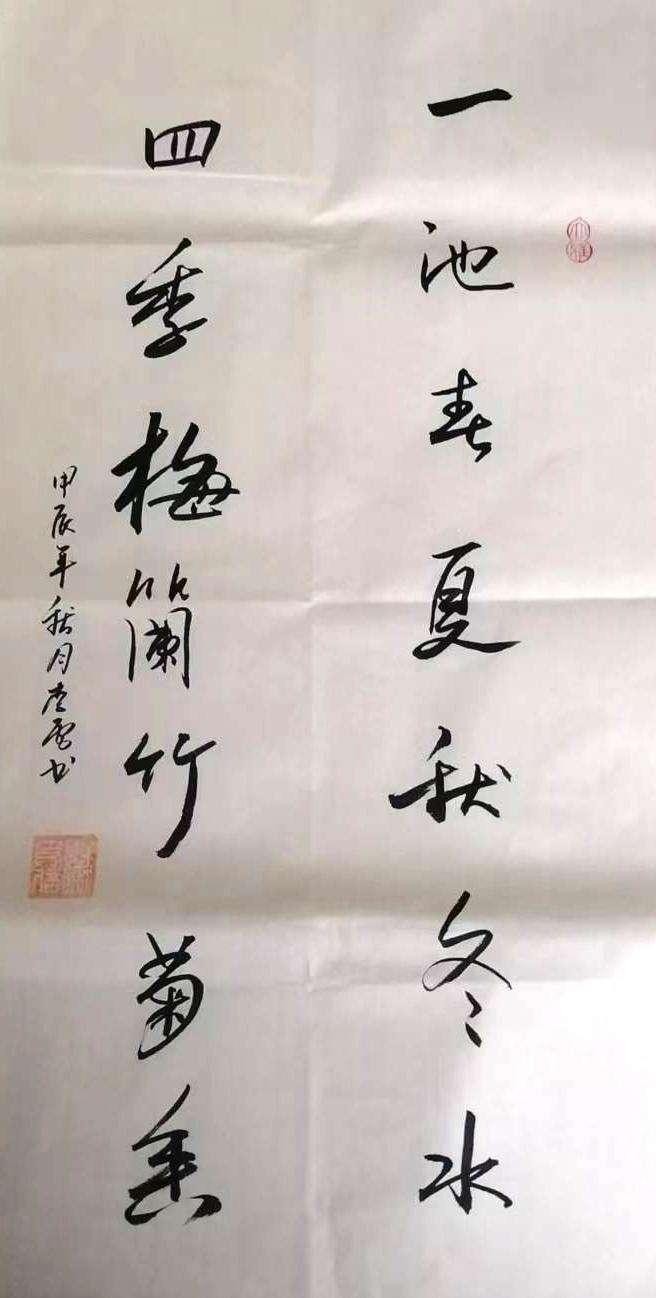 一池春夏秋冬水
四季梅兰竹菊香
甲辰年秋月李雪书